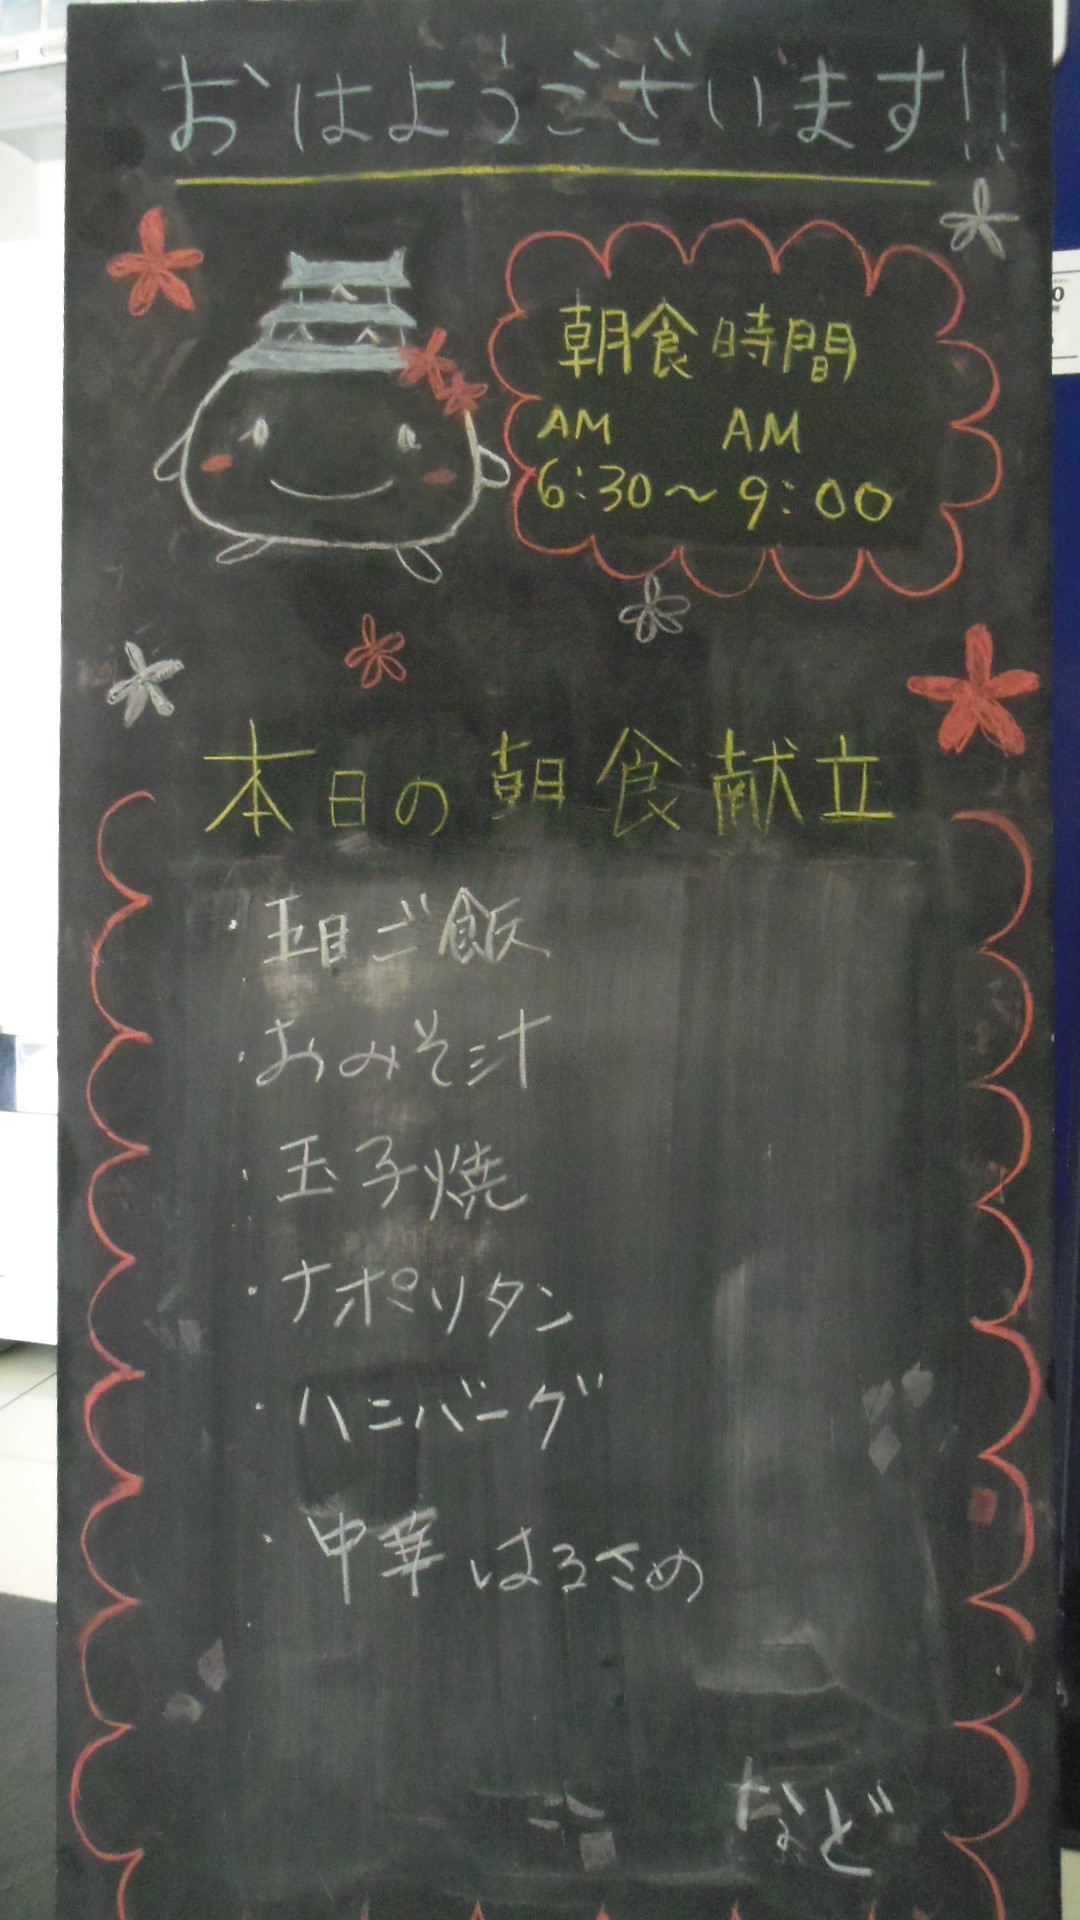 おはようございます!!
朝食時間
AM AM
6:30〜9:00
本日の朝食献立
・五目ご飯
・おみそ汁
・玉子焼
・ナポリタン
・ハンバーグ
・中華はるさめ
など